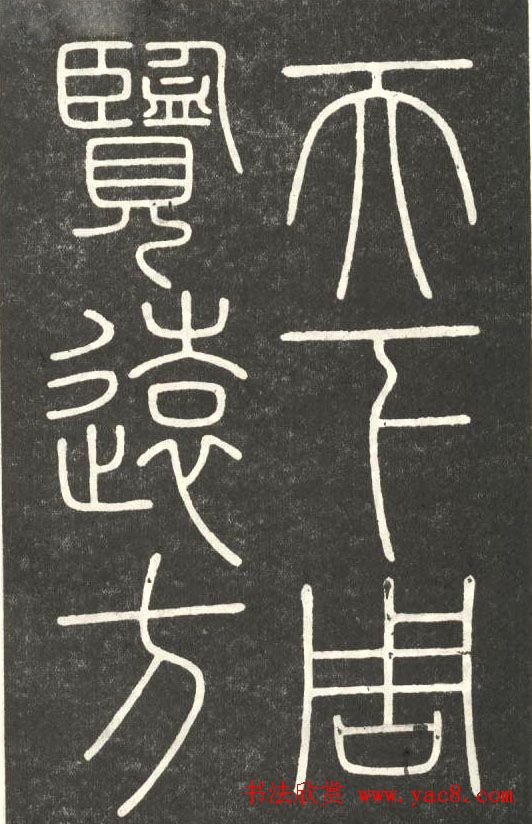 天下周
覽遠方
书法欣赏 www.yac8.com